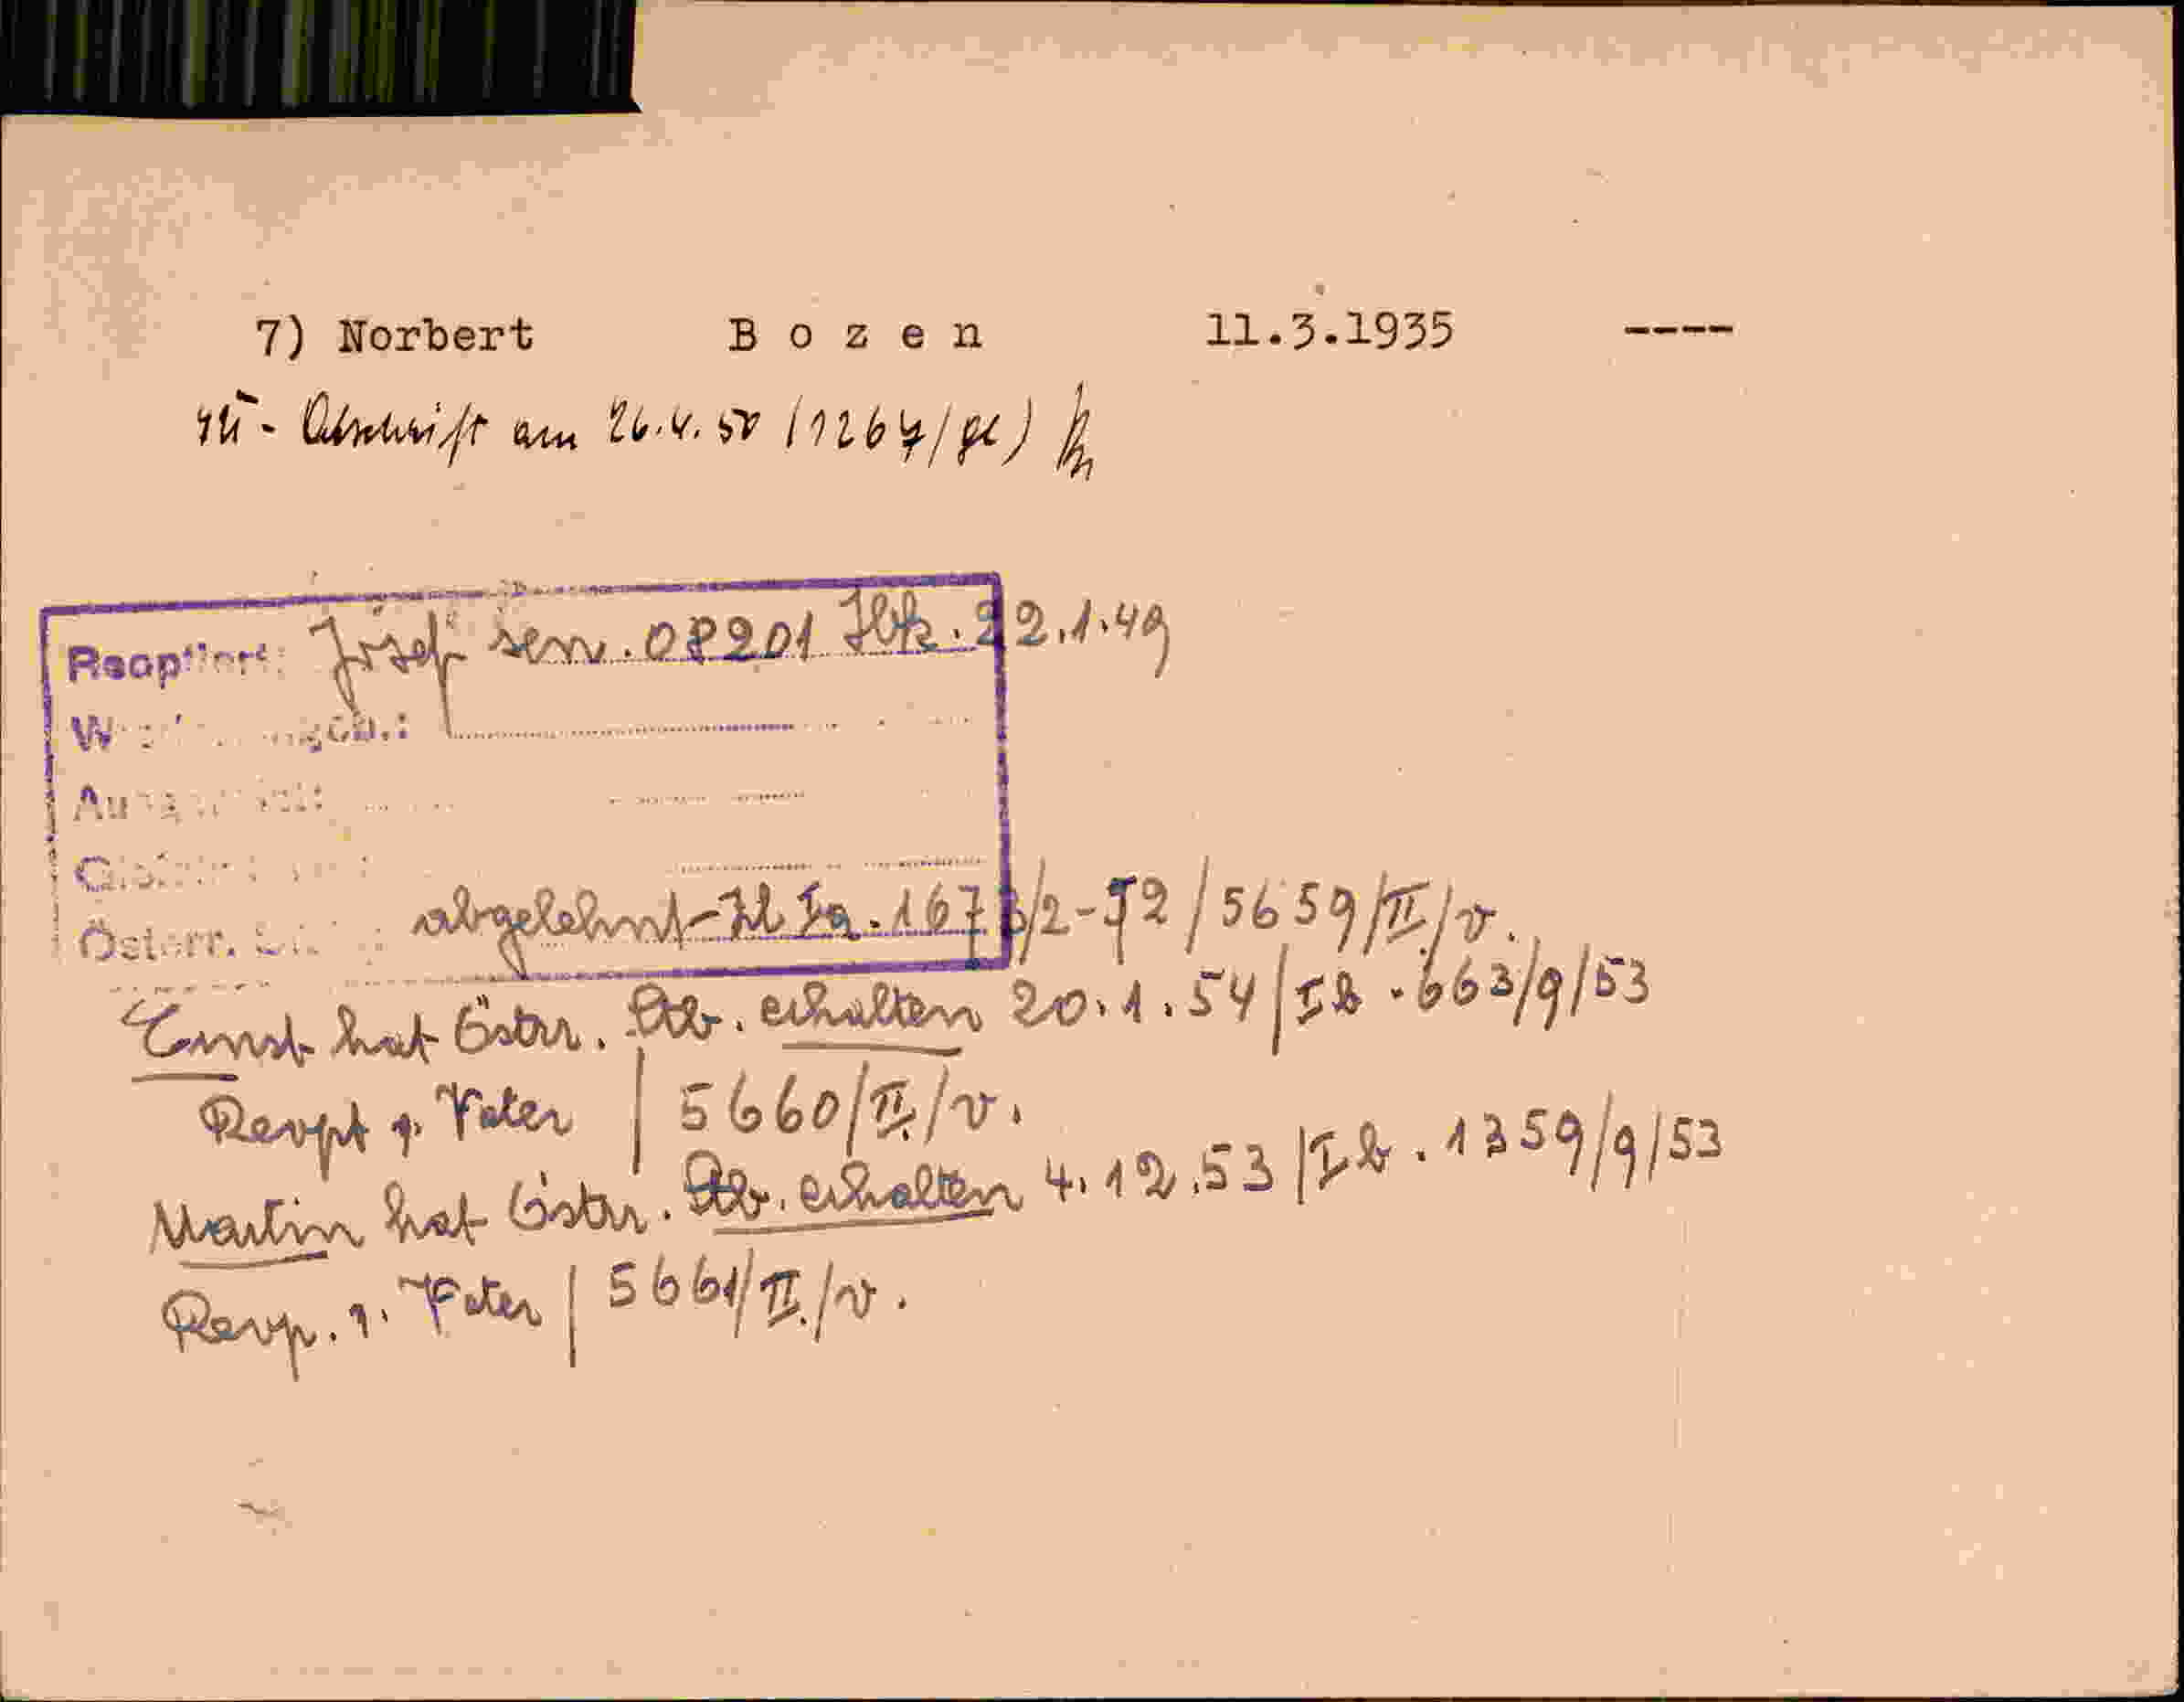 7) Norbert B o z e n 11.3.1935 ----
- Abschrift am 26.4.50 (1267/gl)
Reoptiert: Josef sen. 08201 Ibk. 22.1.49
abgelehnt - Zl Ia. 1673/2-52 / 5659/II/v.
Österr.
Ernst hat Östrr. Stb. erhalten 20.1.54 / Ib. 663/9/53
Reopt q. Vater | 5660/II./v.
Martin hat Östrr. Stb. erhalten 4.12.53 / Ib. 1359/9/53
Reop. q. Vater | 5661/II./v.